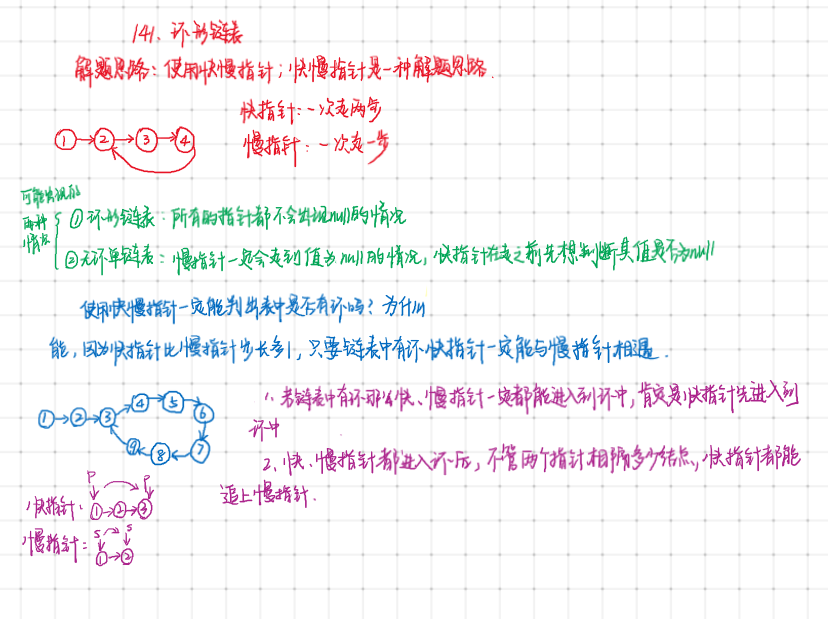 141. 环形链表
解题思路：使用快慢指针；快慢指针是一种解题思路.
快指针：一次走两步
慢指针：一次走一步
1 2 3 4
可能出现的
两种
情况
① 环形链表：所有的指针都不会出现null的情况
② 无环单链表：慢指针一定会走到值为null的情况，快指针在走之前先想判断其值是否为null
使用快慢指针一定能判出表中是否有环吗？为什么
能，因为快指针比慢指针步长多1，只要链表中有环快指针一定能与慢指针相遇.
1、若链表中有环那么快、慢指针一定都能进入到环中，肯定是快指针先进入到
环中
2、快、慢指针都进入环后，不管两个指针相隔多少结点，快指针都能
追上慢指针.
1 2 3 4 5 6 7 8 9
P P
快指针： 1 2 3
S S
慢指针： 1 2